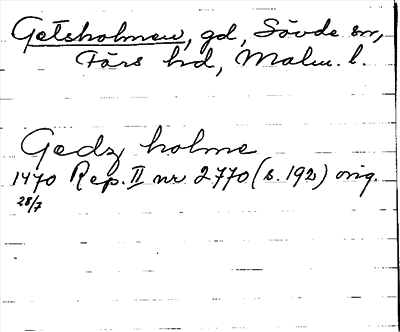 Getsholmen, gd, Sövde sn,
Färs hd, Malm. l.
Gedz holme
1470 Rep. II nr 2770 (s. 192) orig.
28/7